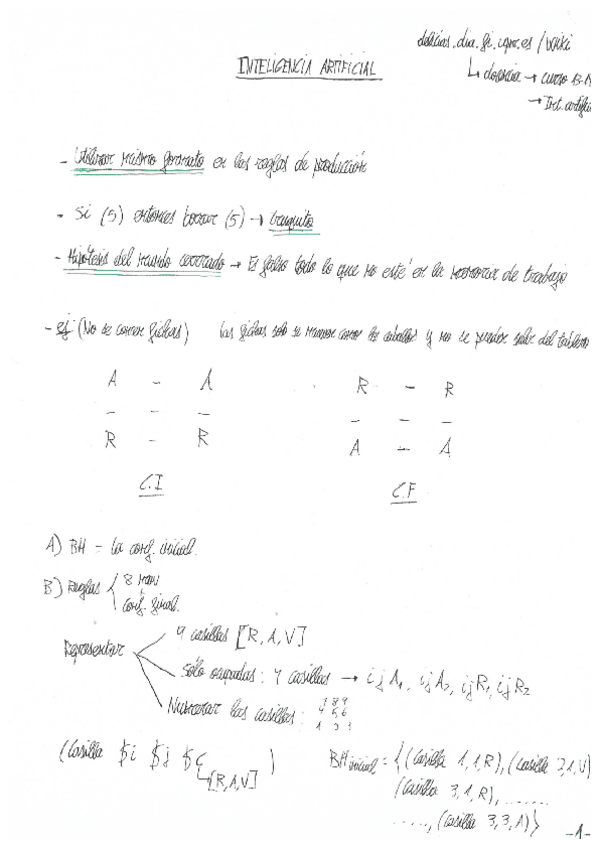 delicias.dia.fi.upm.es/wiki
INTELIGENCIA ARTIFICIAL
↳ docencia → curso 13-1
→ Int. artific
- Utilizar mismo formato en las reglas de producción
- Si (5) entonces borrar (5) → truquito
- Hipótesis del mundo cerrado → Es falso todo lo que no esté en la memoria de trabajo
- ej (No se comen fichas) Las fichas solo se mueven como los caballos y no se pueden salir del tablero
A - A R - R
- - - - - -
R - R A - A
C.I C.F
A) BH = La conf. inicial.
B) Reglas { 8 mov
conf. final.
Representar
9 casillas [R, A, V]
Sólo ocupadas: 4 casillas → ij A1, ij A2, ij R1, ij R2
Numerar las casillas: 7 8 9
4 5 6
1 2 3
(Casilla $i $j $c ) BH inicial = {(Casilla 1,1,R), (Casilla 2,1,V)
[R,A,V] (Casilla 3,1,R), ........
......, (Casilla 3,3,A)}
-1-